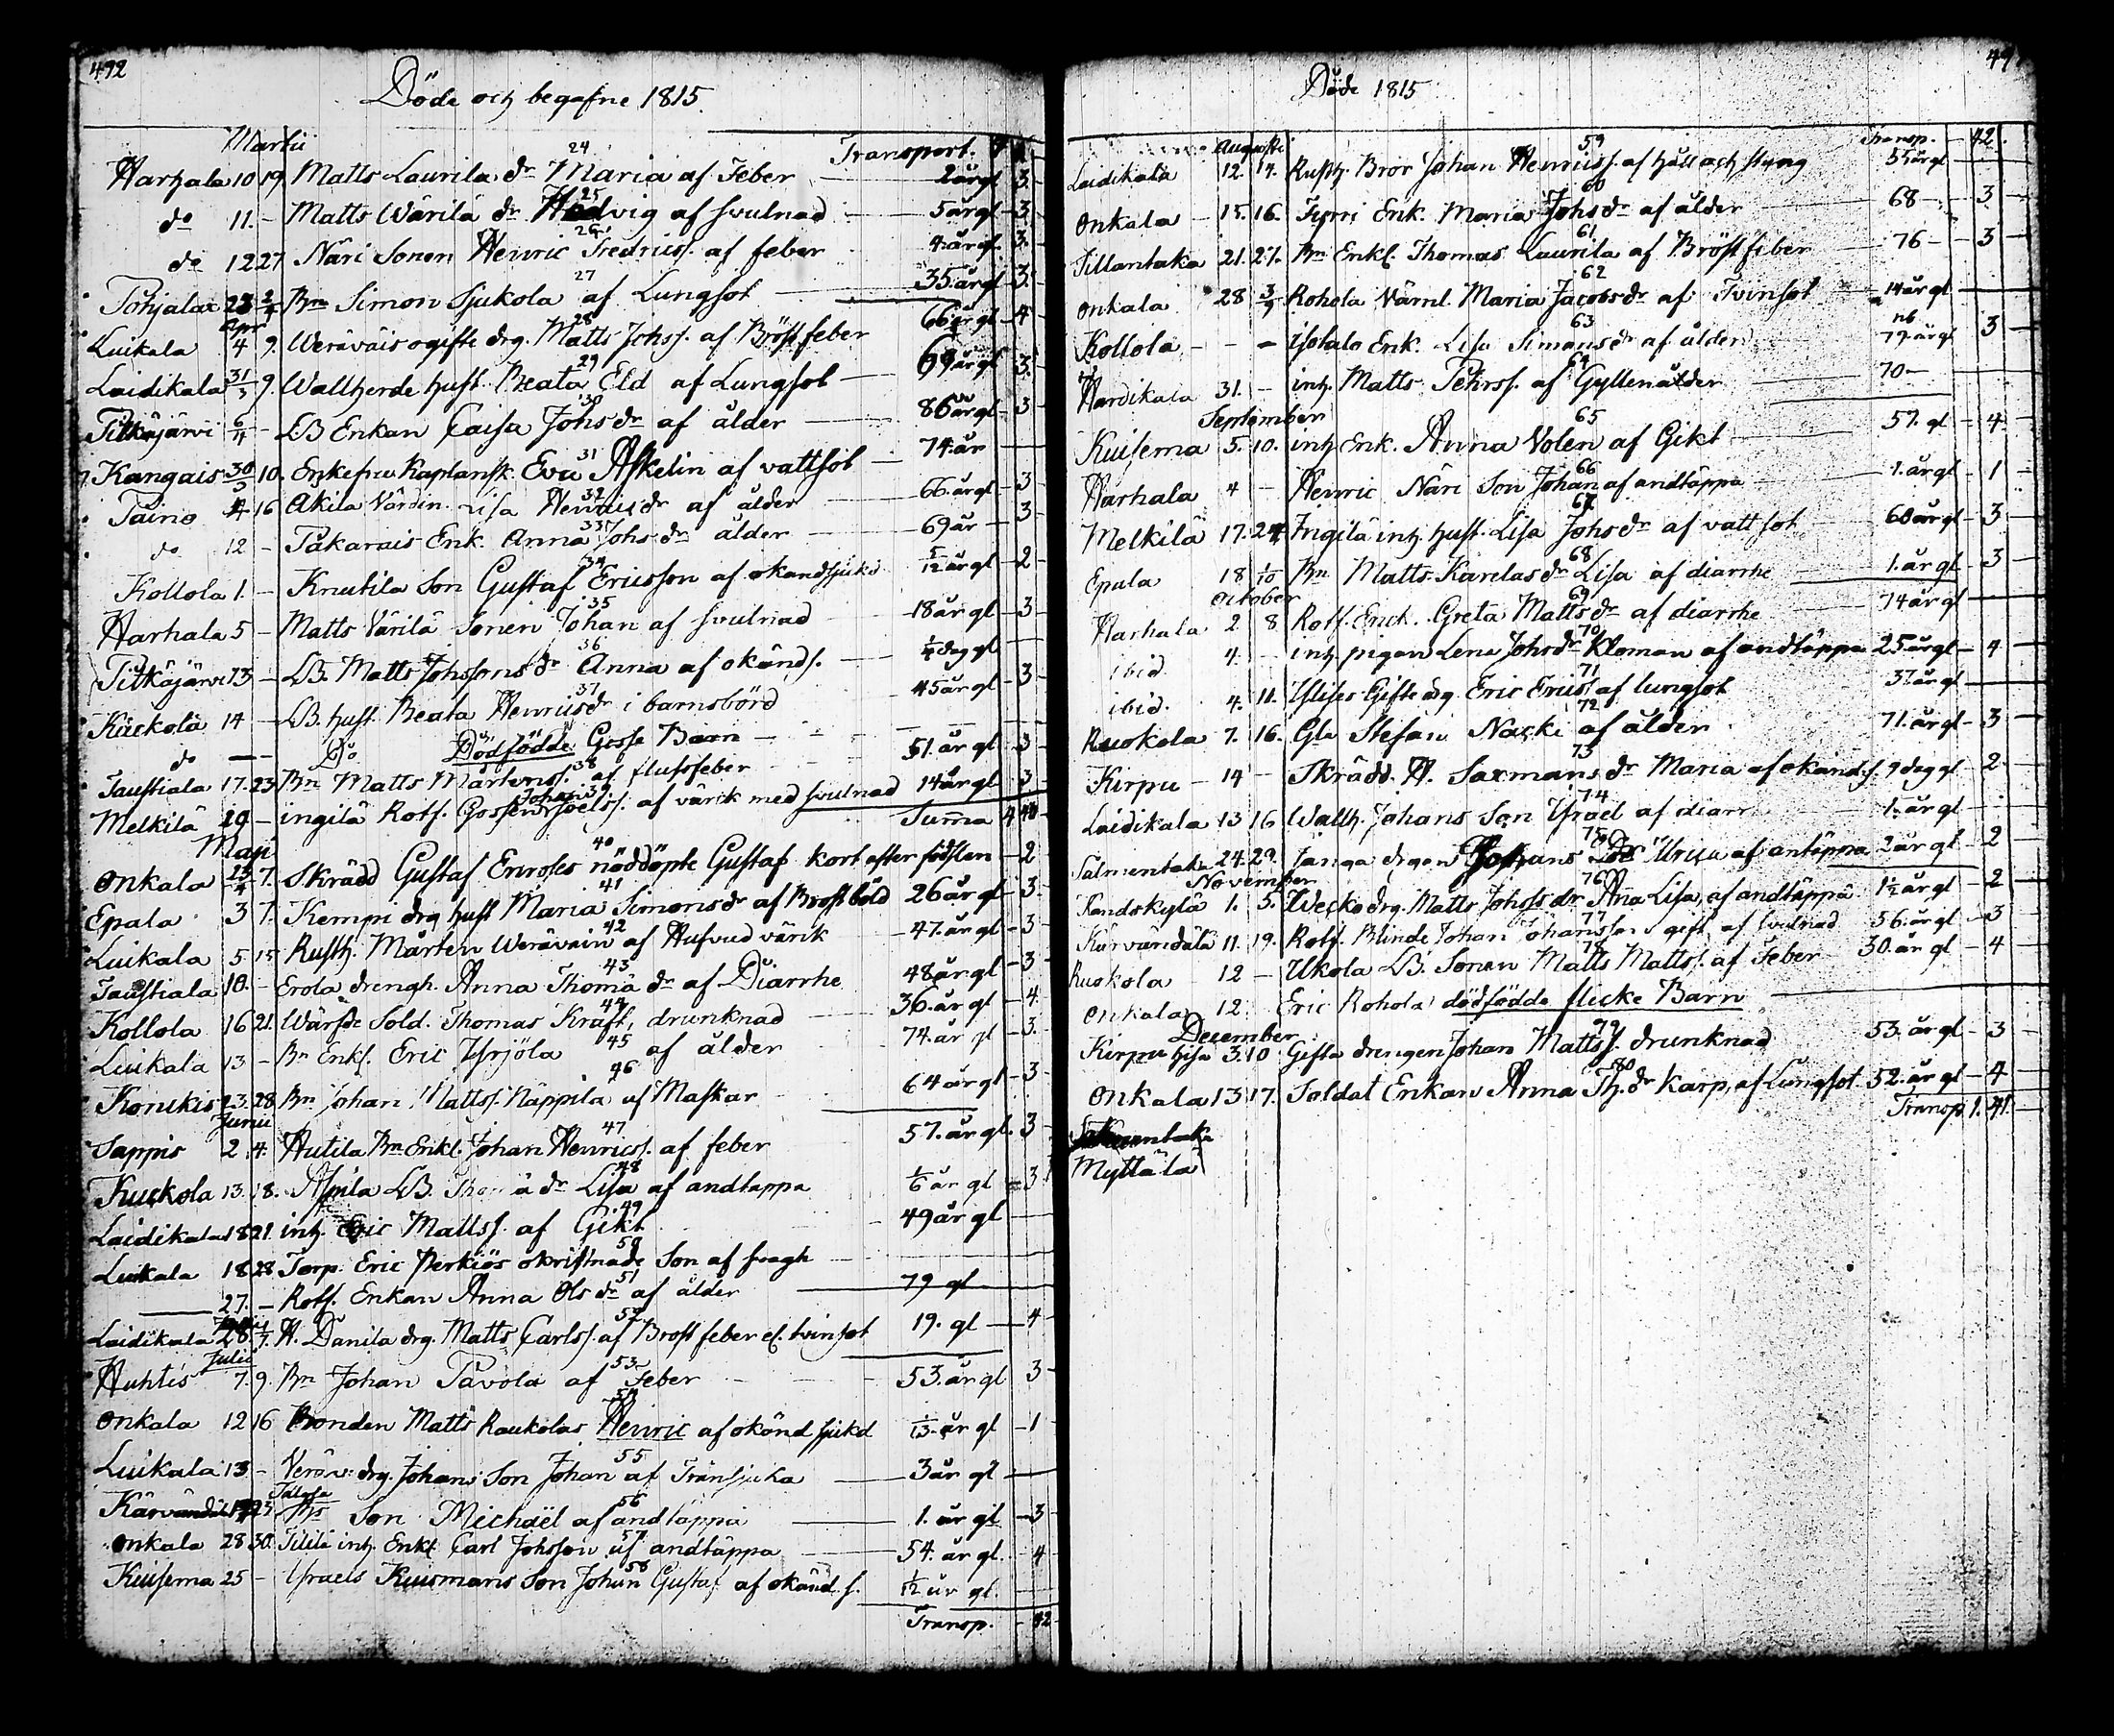 492
Döde och begrafne 1815.
Martii Transport.
24
Harhala 10 19 Matts Laurila dr Maria af Feber 2 år gl 3
25
do 11 - Matts Wärilä dr Hedvig af svulnad 5 år gl 3
26
do 12 27 Näri Sonen Henric Fredricss. af feber 4 år gl 3
27
Pohjala 23 2/4 Bn Simon Sjukola af Lungsot 35 år gl 3
Apr
28
Luikala 4 9. Weräväis ogifte drg. Matts Johss. af Bröstfeber 66 år gl 4
29
Laidikala 31/3 9. Wallherde hust. Beata Eld af Lungsot 69 år gl 3
30
Pitkäjärvi 6/4 - LB Enkan Caisa Johsdr af ålder 86 år gl 3
31
Kangais 30/3 10. Enkefru Kaplansk. Eva Askelin af vattsot 74 år
32
Paino 4 16 Akila Värdin. Lisa Henricsdr af ålder 66 år gl 3
33
do 12 - Pakarais Enk. Anna Johsdr ålder 69 år 3
34
Kollola 1. - Knutila Son Gustaf Ericsson af okändsjukd 5/12 år gl 2
35
Harhala 5 - Matts Värilä Sonen Johan af svulnad 18 år gl 3
36
Pitkäjärvi 13 - LB. Matts Johssons dr Anna af okänd s. 1/4 dag gl
37
Käckölä 14 - LB. hust. Beata Henricsdr i barnsbörd 45 år gl 3
do - - Do Dödfödde Gosse Barn
38
Taustiala 17. 23 Bn Matts Mårtenss. af flussfeber 51. år gl 3
Johan 39
Melkilä 29 - ingilä Rotf. Gossen Joelss. af värik med svulnad 14 år gl 3
Summa 4 40
Maji
40
Onkala 23/4 7. Skrädd Gustaf Enroses nöddöpte Gustaf kort efter födslen 2
41
Epala 3 7. Kempi drg hust Maria Simonsdr af Brostböld 26 år gl 3
42
Luikala 5 15 Rusth. Mårten Weräväin af Hufvud värik 47. år gl 3
43
Taustiala 10. - Erola drengh. Anna Thomä dr af Diarrhe 48 år gl 3
44
Kollola 16 21. Wärfde Sold. Thomas Kraft, drunknad 36. år gl 4
45
Luikala 13 - Bn Enkl. Eric Ysrjöla af ålder 74. år gl 3
46
Konikis 23. 28 Bn Johan Mattss. Näppilä af Maskar 64 år gl 3
Junii
47
Sappis 2 4. Hutila Bn Enkl. Johan Henricss. af feber 57. år gl. 3
48
Kuckola 13. 18. Aspila LB. Thomä dr Lisa af andtappa 1/6 år gl 3
49
Laidikala 18 21. inh. Eric Mattss. af Gikt 49 år gl
50
Luikala 18 28 Torp. Eric Perkiös okristnade Son af svagh
51
27. - Rotf. Enkan Anna Olsdr af ålder 79 gl
52
Laidikala 28 1/7. H. Danila drg. Matts Carlss. af Brostfeber el. tvinsot 19. gl 4
Julii
53
Huhtis 7. 9. Bn Johan Pavola af Feber 53. år gl 3
54
Onkala 12 16 Bonden Matts Raukolas Henric af okänd sjukd 1/13 år gl 1
55
Luikala 13 - Veräv. drg. Johans Son Johan af Tränsjuka 3 år gl
56
Kärvändälä 19 23. Son Michaël af andtäppa 1. år gl 3
57
Onkala 28 30. Tililä inh. Enkl Carl Johsson af andtäppa 54. år gl. 4
58
Kuisema 25 - Israels Kuismans Son Johan Gustaf af okänd s. 1/12 år gl.
Transp. 42
Döde 1815
Augusti Transp. 42
59
Laidikala 12. 17. Rusth. Bror Johan Henricss. af håll och styng 55 år gl
60
Onkala 15. 16. Jyrri Enk. Maria Johsdr af ålder 68 3
61
Tillantaka 21. 27. Bn Enkl. Thomas Laurila af Bröstfeber 76 3
62
Onkala 28 3/9 Rohola Värnl. Maria Jacobsdr af Tvinsot 14 år gl
63
Kollola - - Isotalo Enk. Lisa Simonsdr af ålder 77 år gl 3
64
Hardikala 31. - inh. Matts Pehrss. af Gyllenålder 70
September
65
Kuisema 5. 10. inh Enk. Anna Volen af Gikt 57. gl 4
66
Harhala 4 - Henric Näri Son Johan af andtäppa 1. år gl 1
67
Melkilä 17. 24 Ingilä inh. hust. Lisa Johsdr af vattsot 60 år gl 3
68
Epala 18 1/10 Bn Matts Karelas dr Lisa af diarrhe 1. år gl 3
October
69
Harhala 2 8 Rotf. Enck. Greta Mattsdr af diarrhe 74 år gl
70
ibid. 4. inh. pigan Lena Johsdr Kloman af andtäppa 25 år gl 4
71
ibid. 4. 11. Gifte drg. Eric Ericss af lungsot 37 år gl
72
Ruokola 7. 16. Gla Stefan Nacki af ålder 71. år gl 3
73
Kirpu 14 - Skrädd. H. Saxmans dr Maria af okänd s. 9 dag gl 2
74
Laidikala 13 16 Wallh. Johans Son Israel af diarr 1. år gl
75
Salmentaka 24. 29. Janga drgen Johans dr Ulrica af antäppa 2 år gl 2
November
76
Kandskylä 1. 5. Wecko drg. Matts Johss dr Anna Lisa, af andtäppa 1½ år gl 2
77
Kärvändälä 11. 19. Rotf. Blinde Johan Johansson gift af svulnad 56 år gl 3
78
Ruokola 12 - Ukola LB. Sonen Matts Mattss. af Feber 30. år gl 4
Onkala 12. Eric Rohola dödfödde flicke Barn
December
79
Kirpu hisa 3. 10 Gifta drengen Johan Mattss. drunknad 53. år gl 3
80
Onkala 13 17. Soldat Enkan Anna Th.dr Karp, af Lungsot 52. år gl 4
Transp. 1. 41.
Myttälä